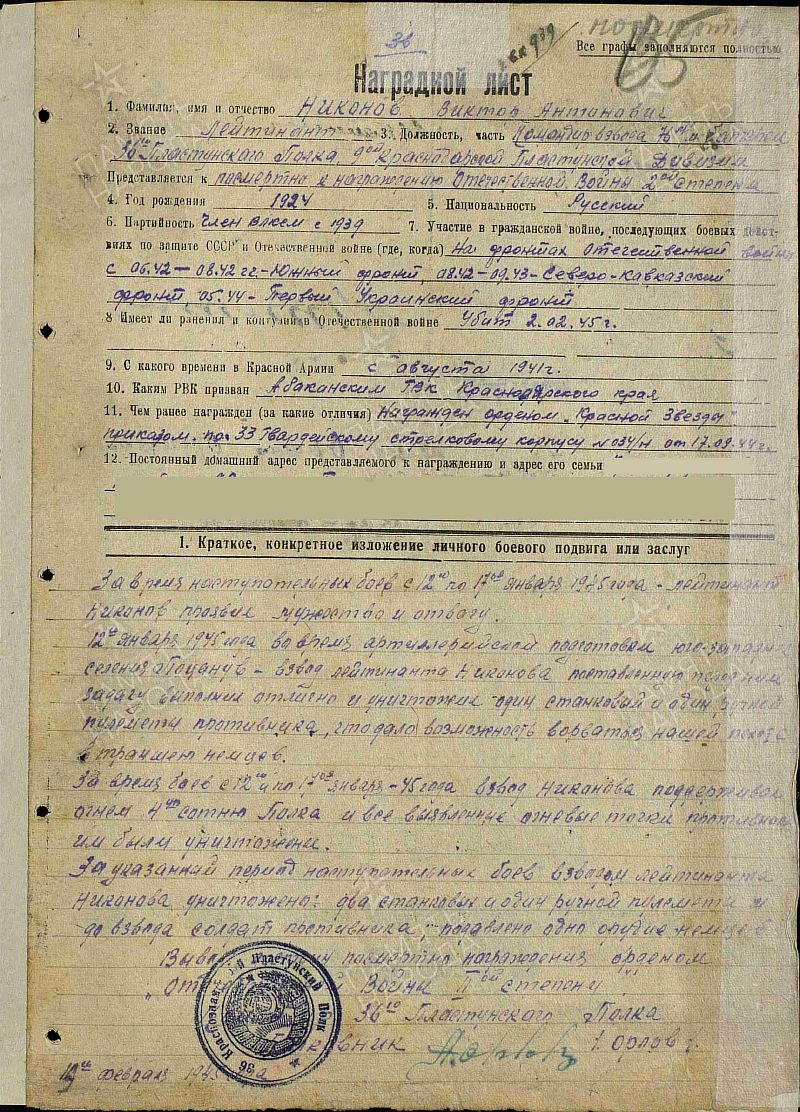 посмертно
36
Все графы заполняются полностью
Наградной лист
1. Фамилия, имя и отчество Никонов Виктор Антонович
2. Звание Лейтинант 3. Должность, часть Командир взвода 76 батареи
36го Пластинского Полка, 9ой Краснодарской Пластинской Дивизии
Представляется к посмертно к награждению Отечественной Войны 2ой степени
4. Год рождения 1924 5. Национальность Русский
6. Партийность Член влксм с 1939 7. Участие в гражданской войне, последующих боевых дейст-
виях по защите СССР и Отечественной войне (где, когда) На фронтах отечественной войны
с 06.42 – 08.42 гг. – Южный фронт, 08.42 – 09.43 – Северо-Кавказский
фронт, 05.44 – Первый Украинский фронт
8 Имеет ли ранения и контузии в Отечественной войне Убит 2.02.45 г.
9. С какого времени в Красной Армии с августа 1941г.
10. Каким РВК призван Абаканским ГВК Красноярского края
11. Чем ранее награжден (за какие отличия) Награжден орденом „Красной Звезды"
приказом по 33 Гвардейскому стрелковому корпусу №034/н от 17.09.44 г.
12. Постоянный домашний адрес представляемого к награждению и адрес его семьи
1. Краткое, конкретное изложение личного боевого подвига или заслуг
За время наступательных боев с 12го по 17ое января 1945 года – лейтинант
Никонов проявил мужество и отвагу.
12го января 1945 года во время артиллерийской подготовки юго-западнее
селения – взвод лейтинанта Никонова поставленную перед ним
задачу выполнил отлично и уничтожил один станковый и один ручной
пулеметы противника, что дало возможность ворваться нашей пехоте
в траншею немцев.
За время боев с 12го и по 17ое января – 45 года взвод Никонова поддерживал
огнем 4ую сотню Полка и все выявленные огневые точки противника
им были уничтожены.
За указанный период наступательных боев взводом лейтинанта
Никонова уничтожено: два станковых и один ручной пулемета и
до взвода солдат противника, подавлено одно орудие немцев
посмертно награждения орденом
Войны IIой степени
36го Пластинского Полка
/. Орлов /.
19го февраля 1945 года
Краснознаменный Пластунский Полк
36